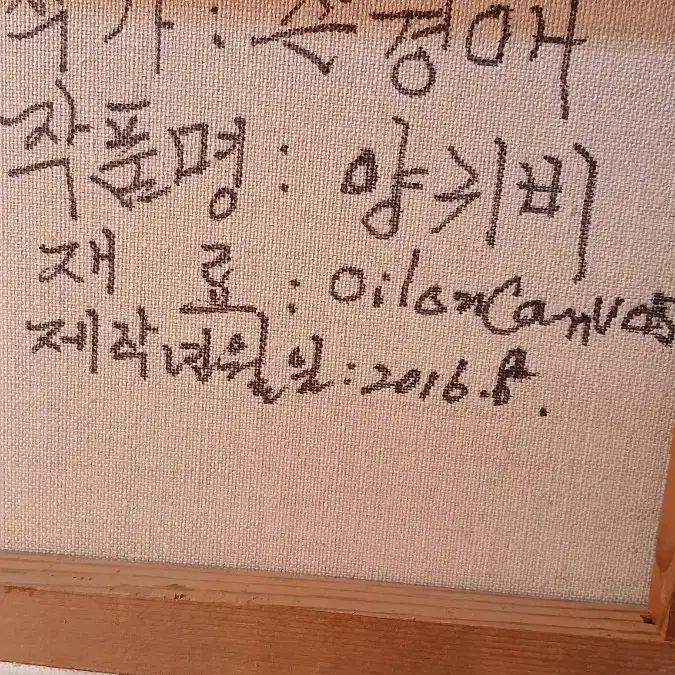 작가: 손정애
작품명: 양귀비
재 료: Oil on Canvas
제작년월일: 2016.8.